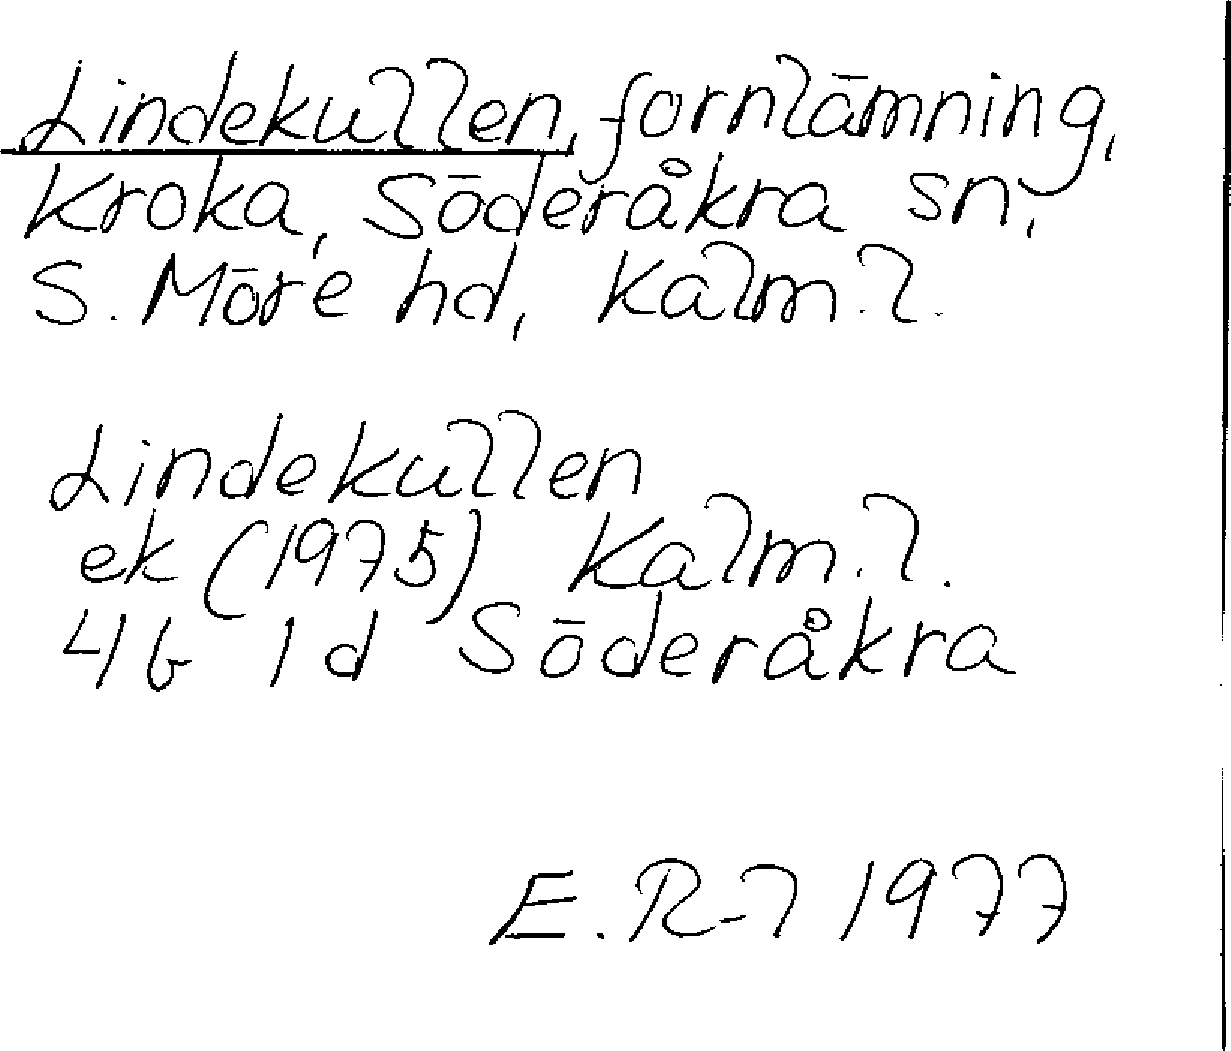 Lindekullen, fornlämning,
Kroka, Söderåkra sn,
S. Möre hd, Kalm. l.
Lindekullen
ek (1975) Kalm. l.
4G 1d Söderåkra
E. R-l 1977